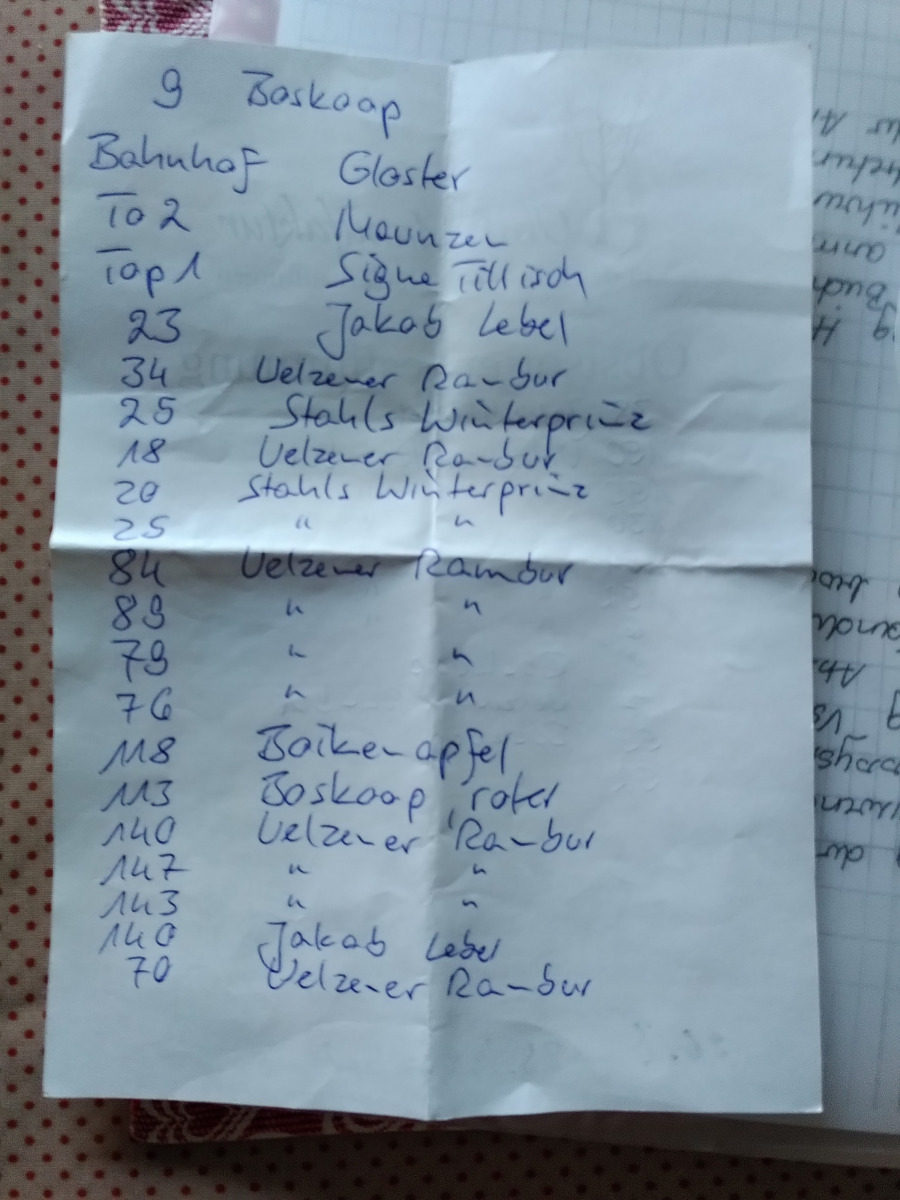 9 Boskoop
Bahnhof Gloster
To 2 Maunzen
Top 1 Signe Tillisch
23 Jakob Lebel
34 Uelzener Rambur
25 Stahls Winterprinz
18 Uelzener Rambur
20 Stahls Winterprinz
25 " "
84 Uelzener Rambur
89 " "
79 " "
76 " "
118 Boikenapfel
113 Boskoop, roter
140 Uelzener Rambur
147 " "
143 " "
140 Jakob Lebel
70 Uelzener Rambur